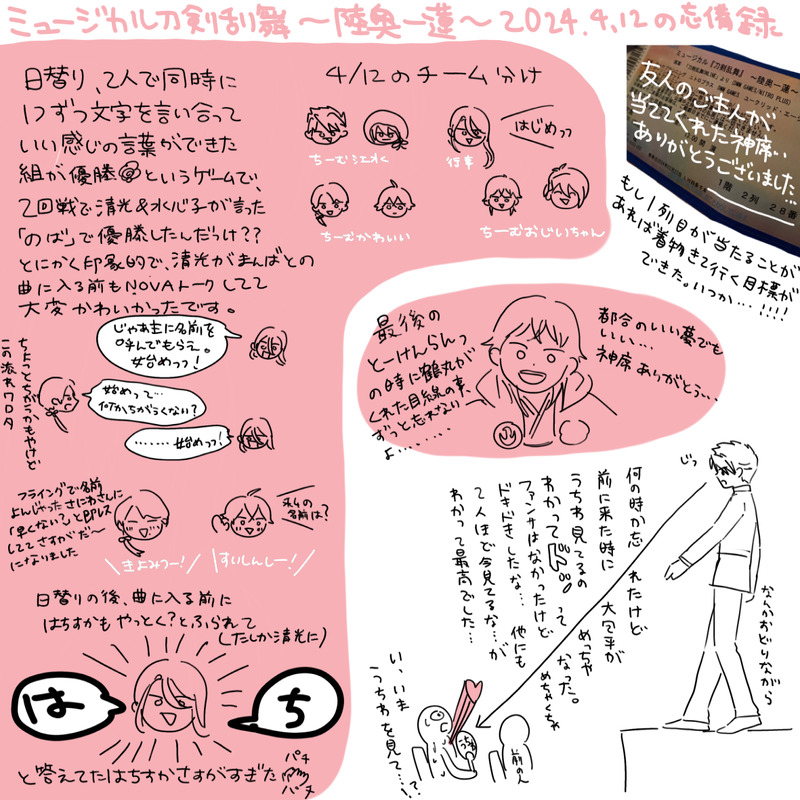 ミュージカル刀剣乱舞 〜陸奥一蓮〜 2024.4.12の忘備録
日替り、2人で同時に
1つずつ文字を言い合って
いい感じの言葉ができた
組が優勝というゲームで、
2回戦で清光&水心子が言った
「のば」で優勝したんだっけ??
とにかく印象的で、清光がまんばとの
曲に入る前もNOVAトークしてて
大変かわいかったです。
じゃあ主に名前を
呼んでもらえ。
始めっっ!
ちょっとちがうかもやけど
この流れワロタ
始めって…
何かちがうくない?
………始めっっ!
フライングで名前
よんじゃったさにわさんに
「早くない?」と即レス
しててさすがだ〜
になりました
\きよみつー!/
私の
名前は?
\すいしんしー!/
日替りの後、曲に入る前に
はちすかもやっとく?とふられて
(たしか清光に)
は
ち
と答えてたはちすかさすがすぎた
パチ
パチ
4/12のチーム分け
ちーむ江水
行事
はじめっっ
ちーむかわいい
ちーむおじいちゃん
ミュージカル『刀剣乱舞』 〜陸奥一蓮〜
友人のご主人が
当ててくれた神席…
ありがとうございました…!!
1階 2列 28番
もし1列目が当たることが
あれば着物きて行く目標が
できた。いつか…!!!!
最後の
とーけんらんっ
の時に鶴丸が
くれた目線の事、
ずっと忘れない
よ………
都合のいい夢でも
いい…
神席ありがとう…
じっ
何の時か忘れたけど
前に来た時に大包平が
うちわ見てるのめっちゃ
わかってドッってなった。
ファンサはなかったけどめちゃくちゃ
ドキドキしたな…他にも
2人ほど今見てるな…が
わかって最高でした…
なんかおどりながら
い、いま
うちわを見て…!?
前の人